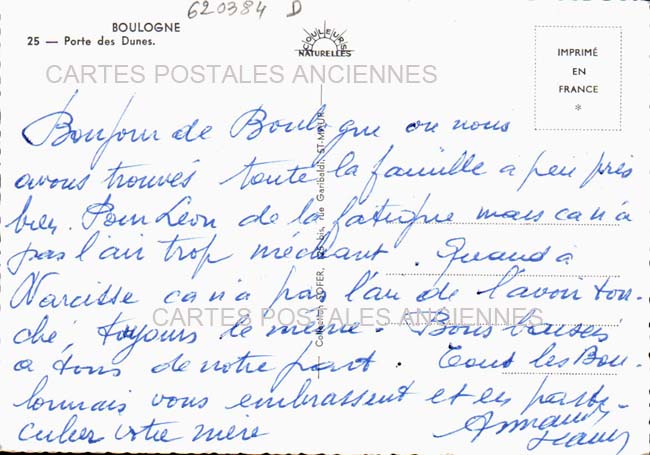 620384 D
BOULOGNE
25 — Porte des Dunes.
COULEURS
NATURELLES
IMPRIMÉ
EN
FRANCE
*
CARTES POSTALES ANCIENNES
Bonjour de Boulogne ou nous
avons trouvés toute la famille a peu près
bien. Pour Léon de la fatigue mais ca n'a
pas l'air trop méchant. Quand à
Narcisse ca n'a pas l'air de l'avoir tou-
ché, toujours le même. Bons baisers
CARTES POSTALES ANCIENNES
a tous de notre part. Tous les Bou-
lonnais vous embrassent et en parti-
culier votre mère
rue Garibaldi, ST-MAUR
Collection SOFER